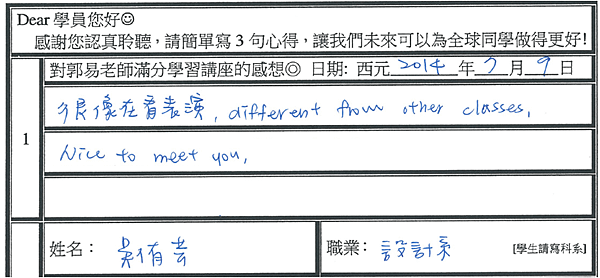 Dear 學員您好☺
感謝您認真聆聽，請簡單寫 3 句心得，讓我們未來可以為全球同學做得更好!
對郭易老師滿分學習講座的感想◎ 日期: 西元 2014 年 7 月 9 日
1
很像在看表演, different from other classes,
Nice to meet you,
姓名： 吳侑芸
職業： 設計系 [學生請寫科系]